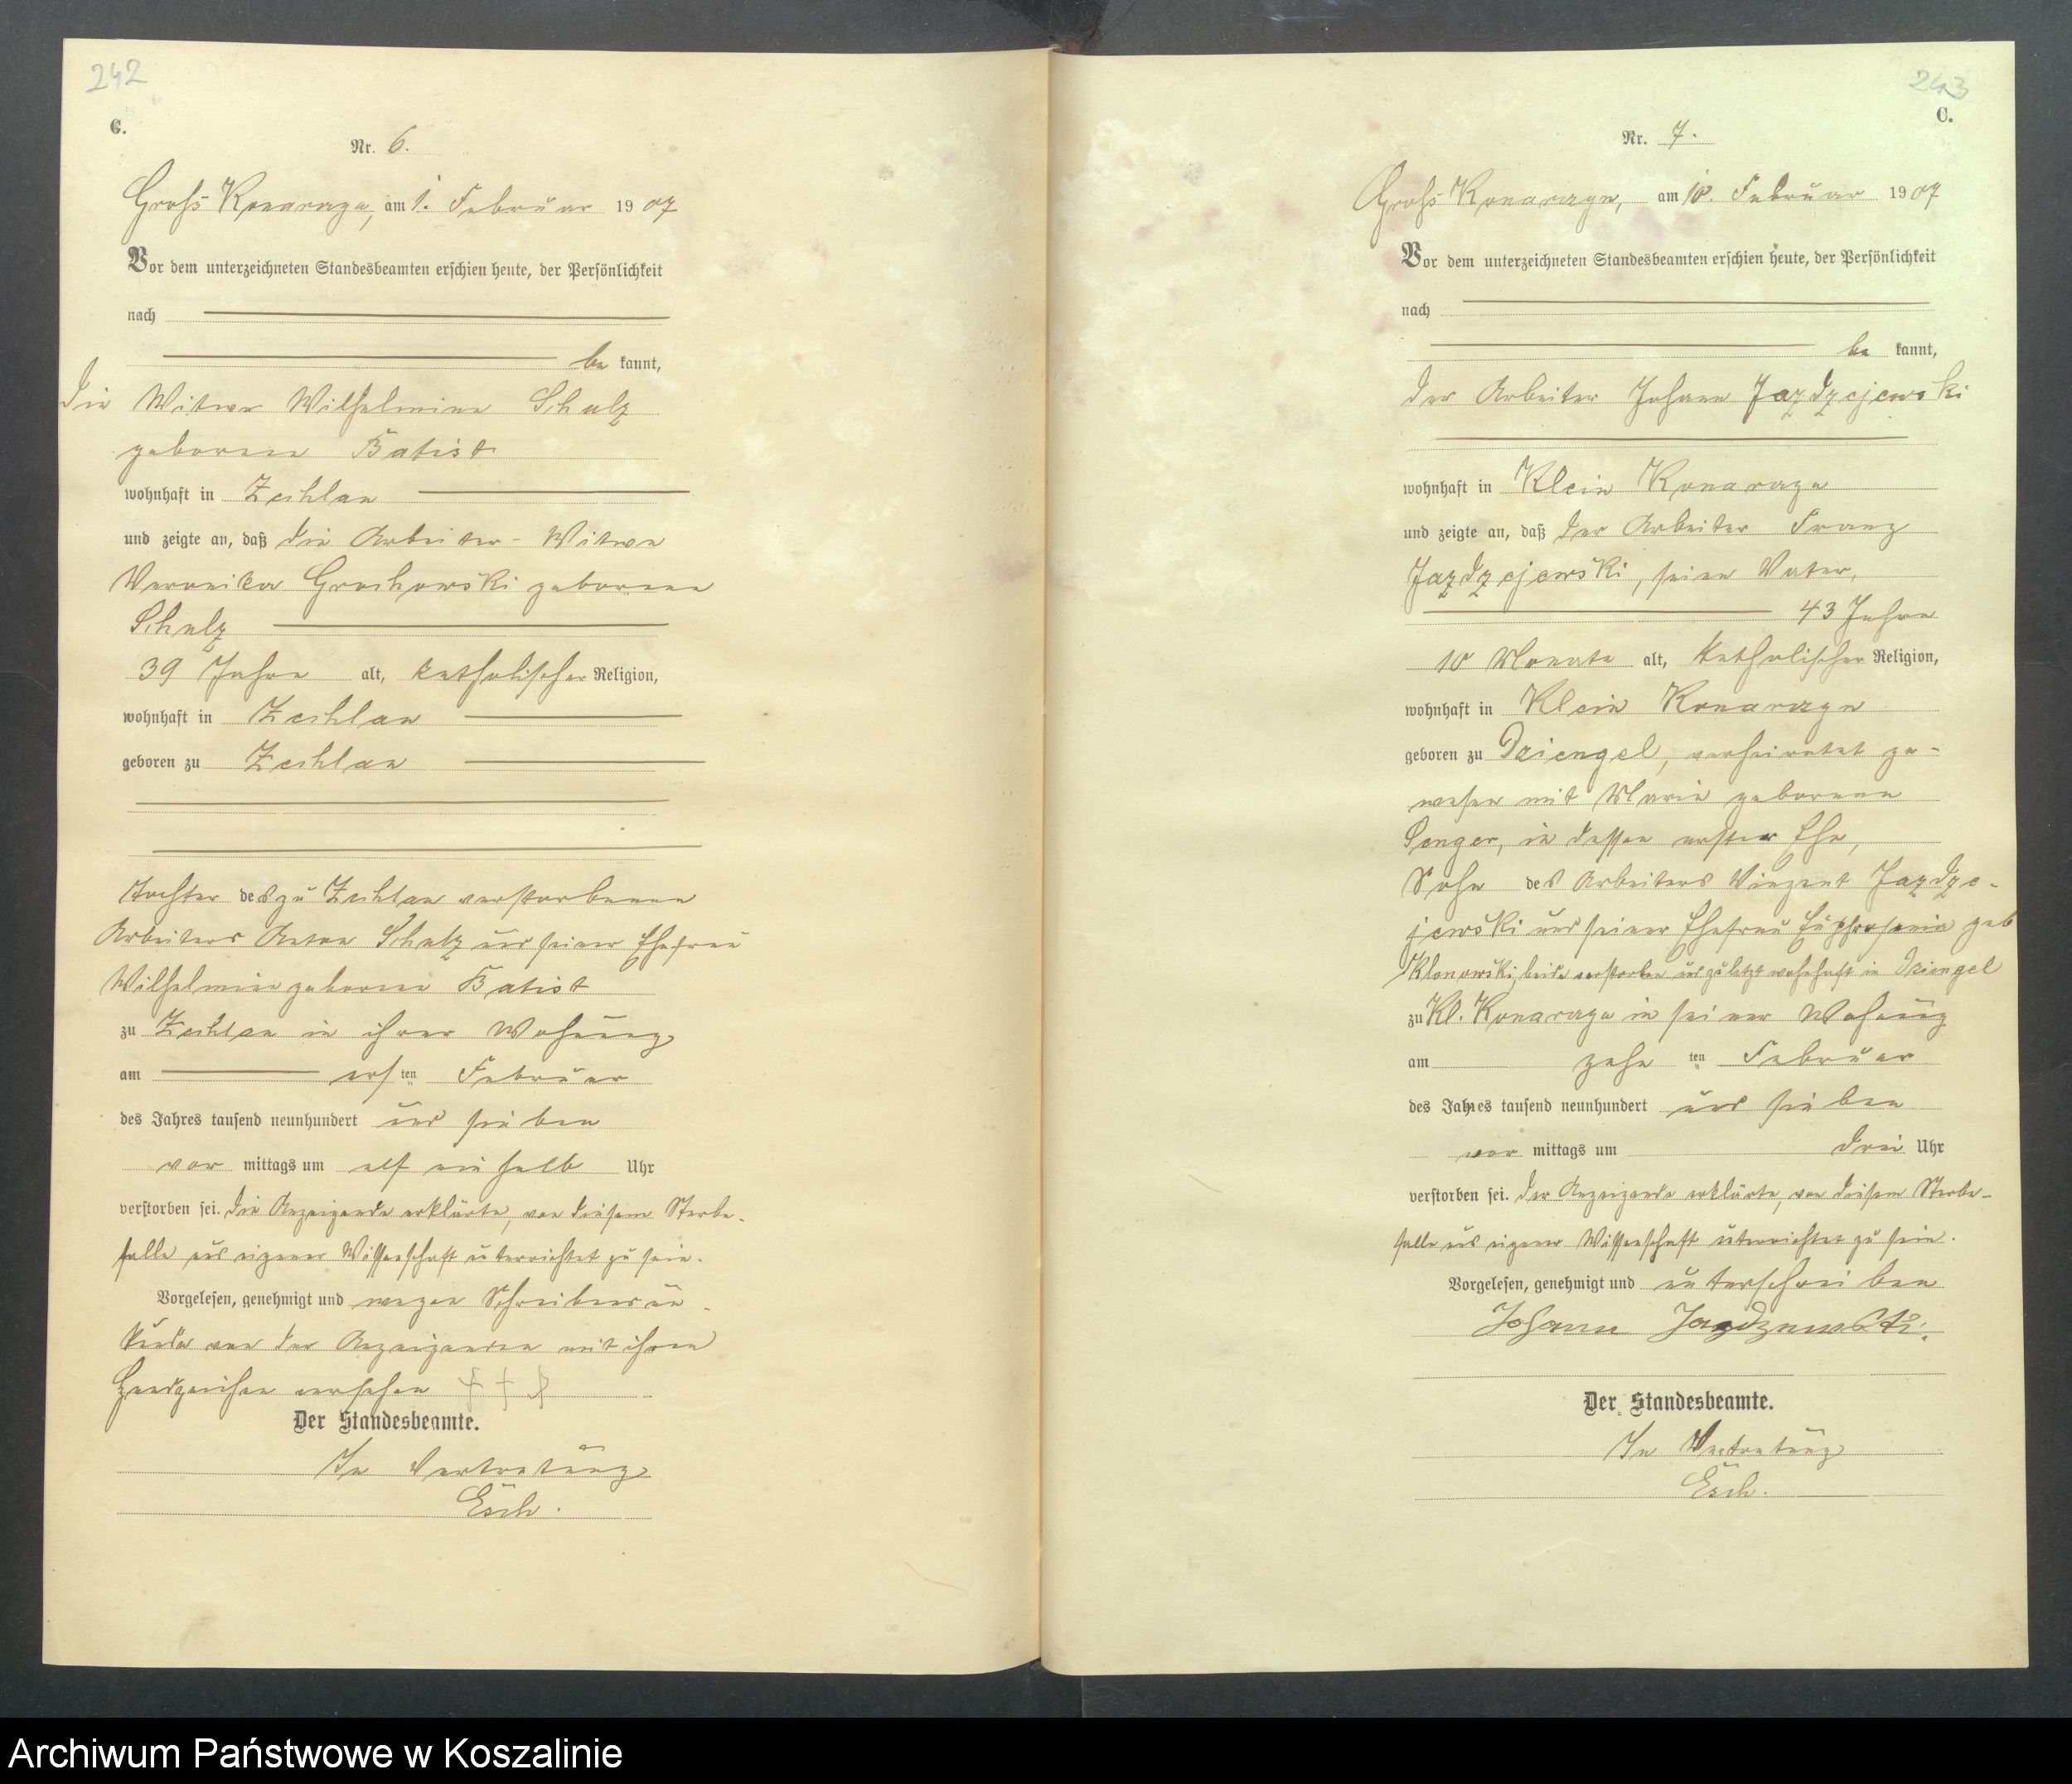 242
C.
Nr. 6.
Groß Konarzyn, am 1. Februar 1907
Vor dem unterzeichneten Standesbeamten erschien heute, der Persönlichkeit
nach
be kannt,
die Witwe Wilhelmine Schulz
geborene Batist
wohnhaft in Zechlau
und zeigte an, daß die Arbeiter-Witwe
Veronika Grochowski geborene
Schulz
39 Jahre alt, katholischer Religion,
wohnhaft in Zechlau
geboren zu Zechlau
Tochter des zu Zechlau verstorbenen
Arbeiters Anton Schulz und seiner Ehefrau
Wilhelmine geborene Batist
zu Zechlau in ihrer Wohnung
am ersten Februar
des Jahres tausend neunhundert und sieben
vor mittags um elf ein halb Uhr
verstorben sei. Die Anzeigende erklärte, von diesem Sterbe-
falle aus eigener Wissenschaft unterrichtet zu sein.
Vorgelesen, genehmigt und wegen Schreibensun-
kunde von der Anzeigenden mit ihren
Handzeichen versehen + + +
Der Standesbeamte.
In Vertretung
Esch.
243
C.
Nr. 7.
Groß Konarzyn, am 10. Februar 1907
Vor dem unterzeichneten Standesbeamten erschien heute, der Persönlichkeit
nach
be kannt,
der Arbeiter Johann Jazdzejewski
wohnhaft in Klein Konarzyn
und zeigte an, daß der Arbeiter Franz
Jazdzejewski, sein Vater,
43 Jahre
10 Monate alt, katholischer Religion,
wohnhaft in Klein Konarzyn
geboren zu Dziengel, verheiratet ge-
wesen mit Marie geborene
Senger, in dessen erster Ehe,
Sohn des Arbeiters Vinzent Jazdze-
jewski und seiner Ehefrau Euphrosenia geb
Klonowski, beide verstorben und zuletzt wohnhaft in Dziengel
zu Kl. Konarzyn in seiner Wohnung
am zehnten Februar
des Jahres tausend neunhundert und sieben
vor mittags um drei Uhr
verstorben sei. Der Anzeigende erklärte, von diesem Sterbe-
falle aus eigener Wissenschaft unterrichtet zu sein.
Vorgelesen, genehmigt und unterschrieben
Johann Jazdzewski.
Der Standesbeamte.
In Vertretung
Esch.
Archiwum Państwowe w Koszalinie